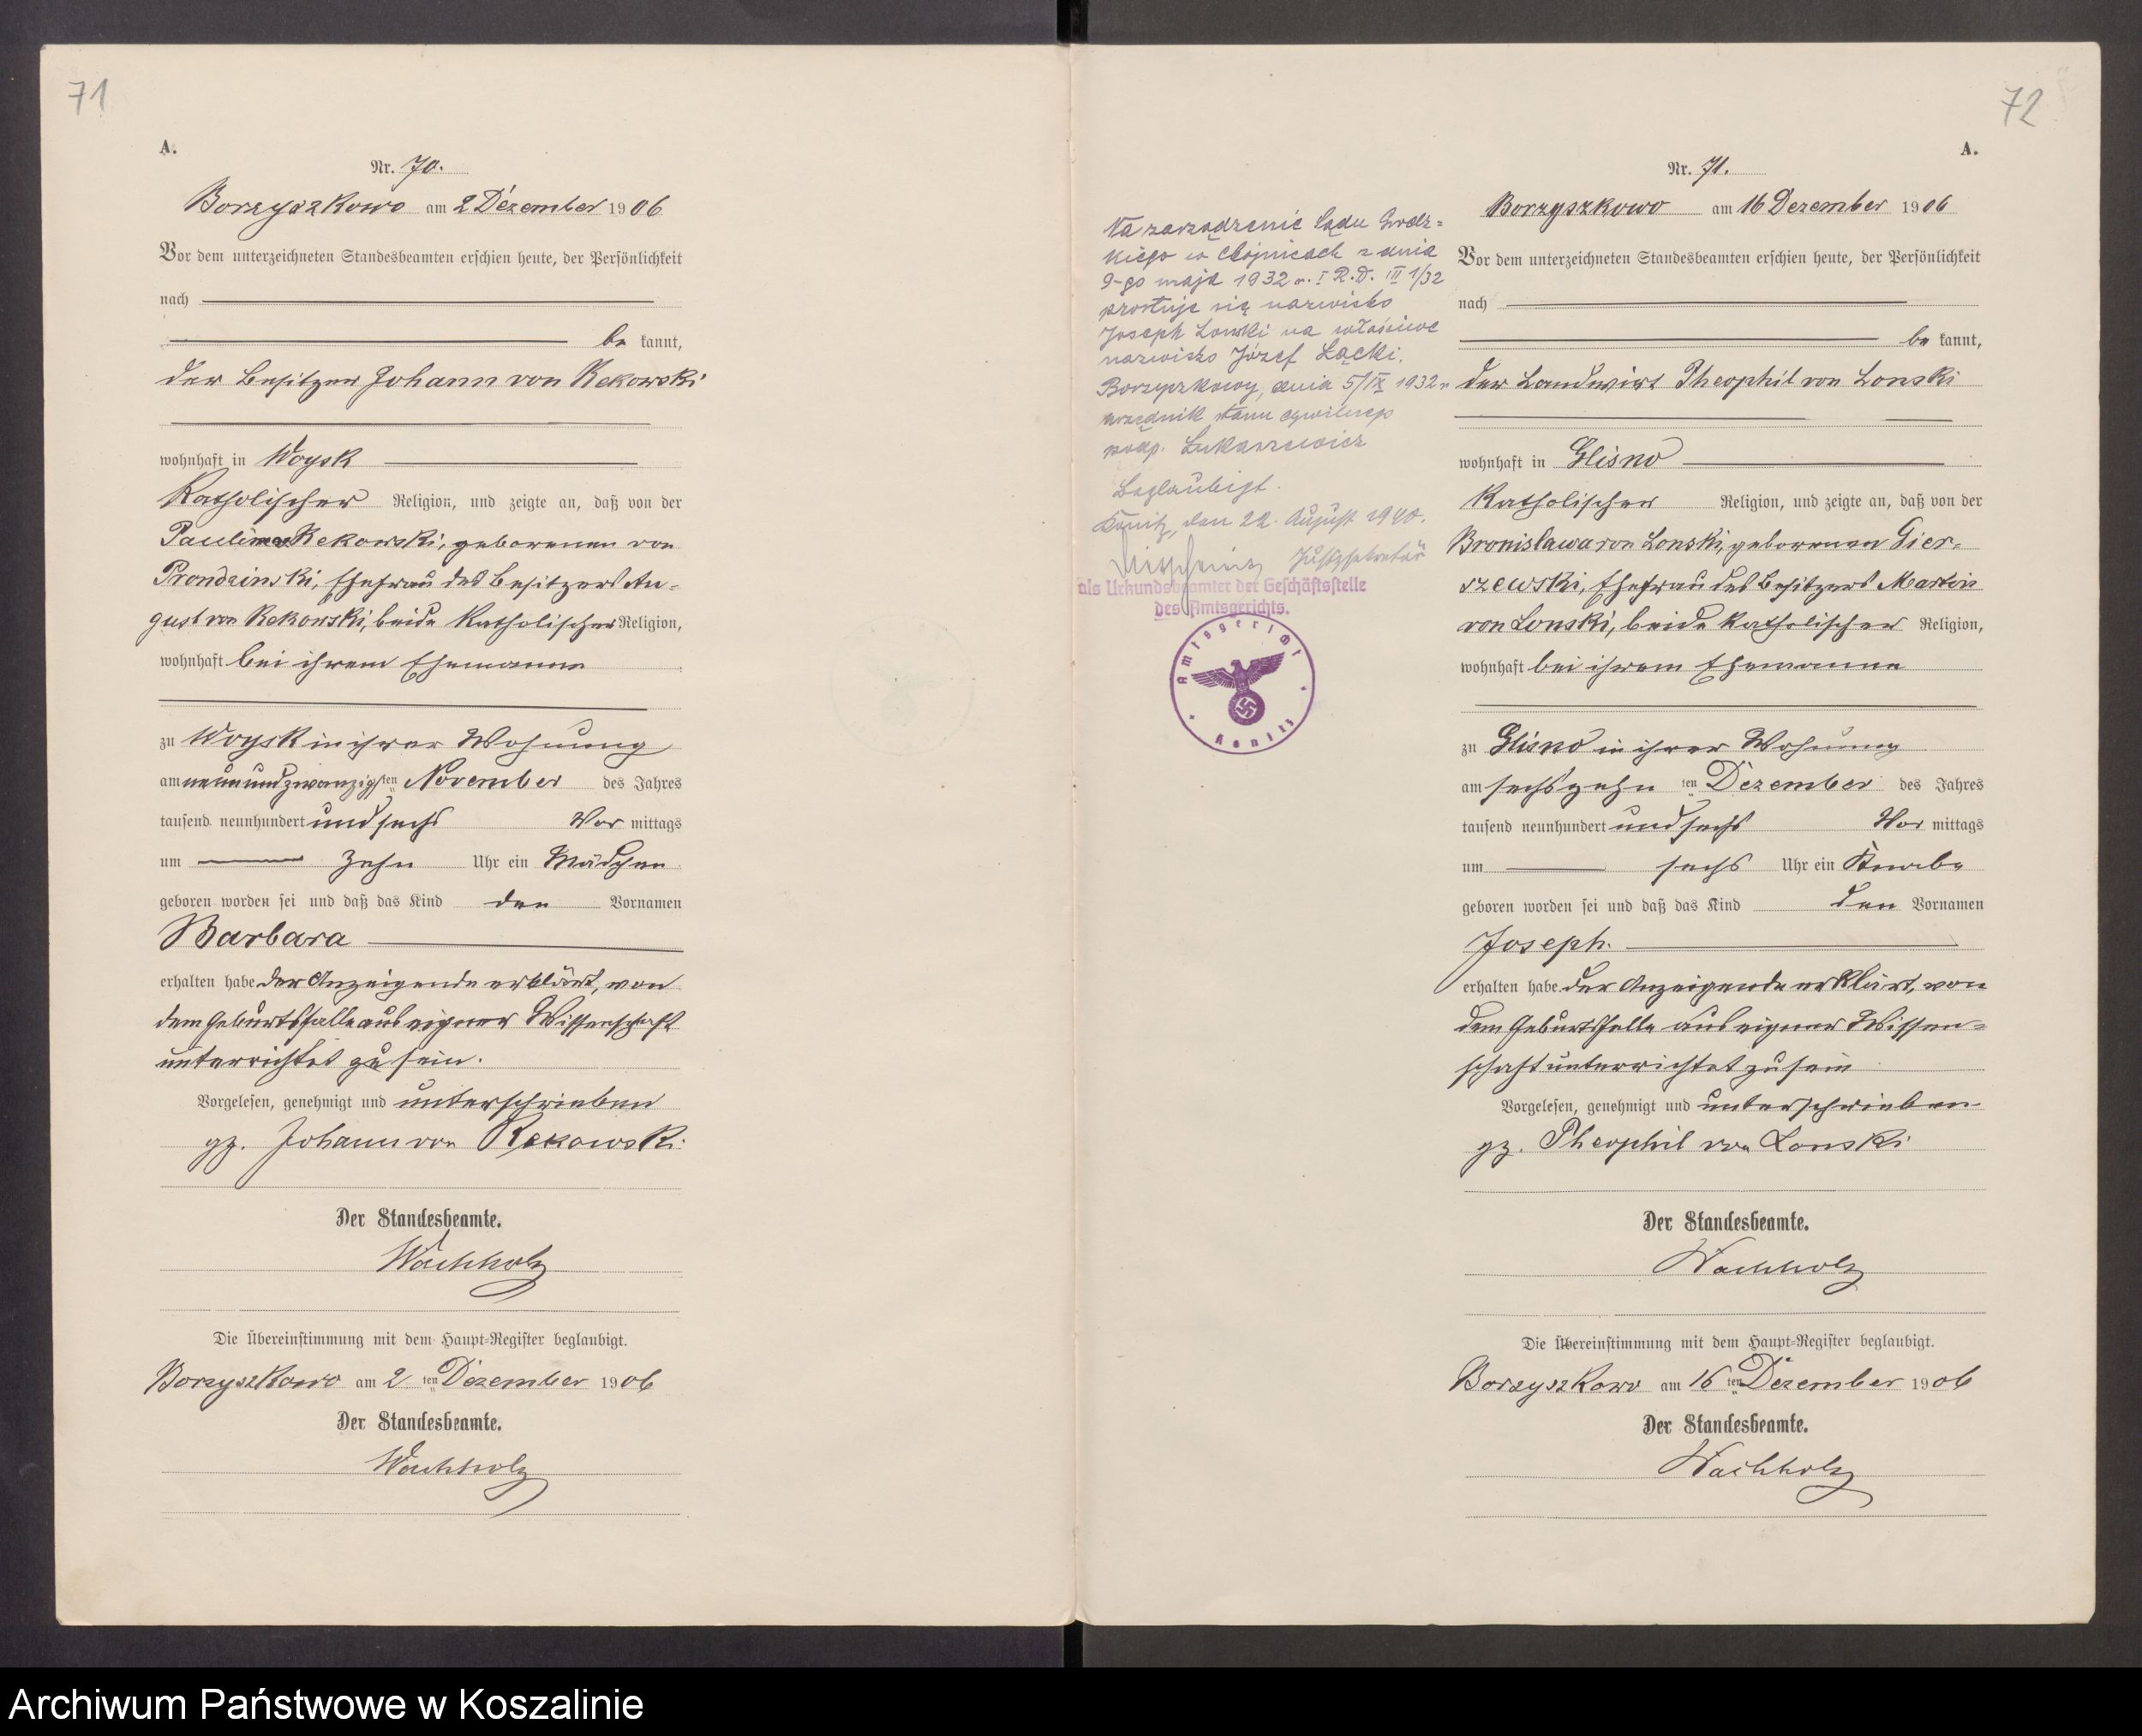 71
A.
Nr. 70.
Borzyszkowo am 2 Dezember 1906
Vor dem unterzeichneten Standesbeamten erschien heute, der Persönlichkeit
nach
be kannt,
der Besitzer Johann von Rekowski
wohnhaft in Woysk
Katholischer Religion, und zeigte an, daß von der
Pauline Rekowski, geborenen von
Prondzinski, Ehefrau des Besitzers Au-
gust von Rekowski, beide katholischer Religion,
wohnhaft bei ihrem Ehemanne
zu Woysk in ihrer Wohnung
am neunundzwanzigsten November des Jahres
tausend neunhundert und sechs Vor mittags
um zehn Uhr ein Mädchen
geboren worden sei und daß das Kind den Vornamen
Barbara
erhalten habe der Anzeigende erklärt, von
dem Geburtsfalle aus eigner Wissenschaft
unterrichtet zu sein.
Vorgelesen, genehmigt und unterschrieben
gz. Johann von Rekowski
Der Standesbeamte.
Wachholz
Die Übereinstimmung mit dem Haupt-Register beglaubigt.
Borzyszkowo am 2 ten Dezember 1906
Der Standesbeamte.
Wachholz
72
A.
Na zarządzenie Sądu Grodz-
kiego w Chojnicach z dnia
9-go maja 1932 r. I R.D. III 1/32
prostuje się nazwisko
Joseph Lonski na właściwe
nazwisko Józef Łącki.
Borzyszkowy, dnia 5/IX 1932 r
urzędnik stanu cywilnego
podp. Lukaszewicz
Beglaubigt.
Konitz, den 22. August 1940.
Justizsekretär
als Urkundsbeamter der Geschäftsstelle
des Amtsgerichts.
Amtsgericht
Konitz
Nr. 71.
Borzyszkowo am 16 Dezember 1906
Vor dem unterzeichneten Standesbeamten erschien heute, der Persönlichkeit
nach
be kannt,
der Landwirt Theophil von Lonski
wohnhaft in Glisno
Katholischer Religion, und zeigte an, daß von der
Bronislawa von Lonski, geborenen Gier-
szewski, Ehefrau des Besitzers Martin
von Lonski, beide katholischer Religion,
wohnhaft bei ihrem Ehemanne
zu Glisno in ihrer Wohnung
am sechszehn ten Dezember des Jahres
tausend neunhundert und sechs Vor mittags
um sechs Uhr ein Knabe
geboren worden sei und daß das Kind den Vornamen
Joseph.
erhalten habe. der Anzeigende erklärt, von
dem Geburtsfalle aus eigner Wissen-
schaft unterrichtet zu sein
Vorgelesen, genehmigt und unterschrieben
gz. Theophil von Lonski
Der Standesbeamte.
Wachholz
Die Übereinstimmung mit dem Haupt-Register beglaubigt.
Borzyszkowo am 16 ten Dezember 1906
Der Standesbeamte.
Wachholz
Archiwum Państwowe w Koszalinie